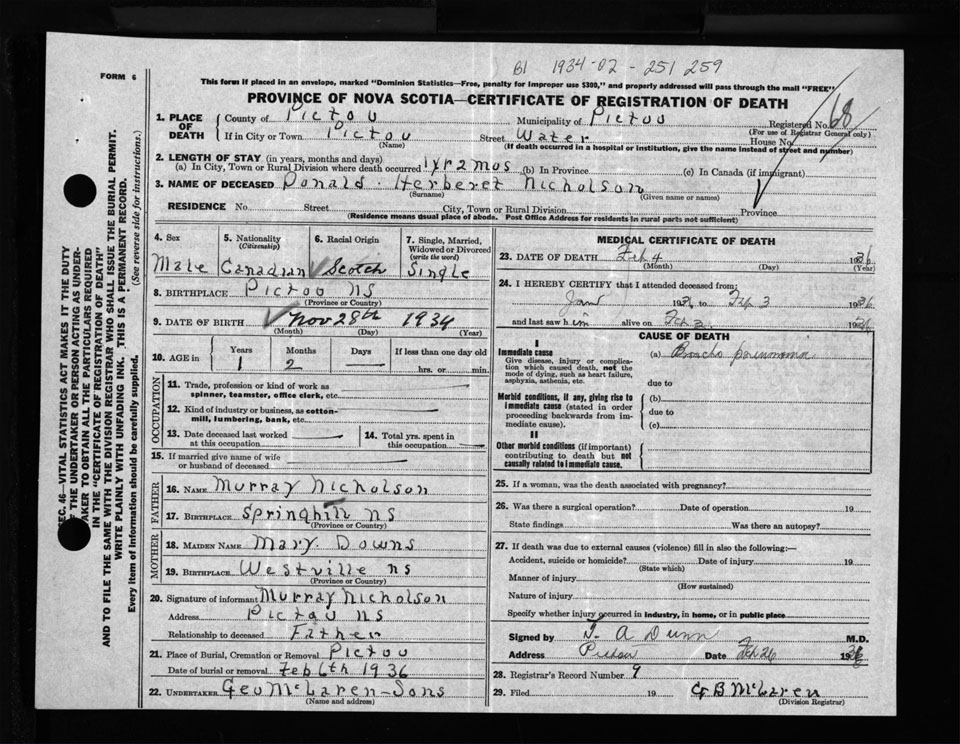 B1 1934-02-251259
FORM 6
This form if placed in an envelope, marked "Dominion Statistics—Free, penalty for improper use $300," and properly addressed will pass through the mail "FREE"
PROVINCE OF NOVA SCOTIA—CERTIFICATE OF REGISTRATION OF DEATH
1. PLACE OF DEATH County of Pictou Municipality of Pictou Registered No. 68
(For use of Registrar General only)
If in City or Town Pictou Street Water House No.
(Name) (If death occurred in a hospital or institution, give the name instead of street and number)
2. LENGTH OF STAY (in years, months and days)
(a) In City, Town or Rural Division where death occurred 1 yr 2 mos (b) In Province (c) In Canada (if immigrant)
3. NAME OF DECEASED Donald Herberet Nicholson
(Surname) (Given name or names)
RESIDENCE No. Street City, Town or Rural Division Province
(Residence means usual place of abode. Post Office Address for residents in rural parts not sufficient)
4. Sex 5. Nationality (Citizenship) 6. Racial Origin 7. Single, Married, Widowed or Divorced (write the word)
Male Canadian Scotch Single
8. BIRTHPLACE Pictou NS
(Province or Country)
9. DATE OF BIRTH Nov 28th 1934
(Month) (Day) (Year)
10. AGE in Years Months Days If less than one day old
1 2 hrs. or min.
OCCUPATION
11. Trade, profession or kind of work as spinner, teamster, office clerk, etc.
12. Kind of industry or business, as cotton-mill, lumbering, bank, etc.
13. Date deceased last worked at this occupation 14. Total yrs. spent in this occupation
15. If married give name of wife or husband of deceased
FATHER
16. NAME Murray Nicholson
17. BIRTHPLACE Springhill NS
(Province or Country)
MOTHER
18. MAIDEN NAME Mary Downs
19. BIRTHPLACE Westville NS
(Province or Country)
20. Signature of informant Murray Nicholson
Address Pictou NS
Relationship to deceased Father
21. Place of Burial, Cremation or Removal Pictou
Date of burial or removal Feb 6th 1936
22. UNDERTAKER Geo McLaren-Sons
(Name and address)
MEDICAL CERTIFICATE OF DEATH
23. DATE OF DEATH Feb 4 1936
(Month) (Day)
24. I HEREBY CERTIFY that I attended deceased from:
Jan 1936 to Feb 3 1936
and last saw him alive on Feb 3 1936
CAUSE OF DEATH
I
Immediate cause (a) Broncho pneumonia
Give disease, injury or complication which caused death, not the mode of dying, such as heart failure, asphyxia, asthenia, etc. due to
Morbid conditions, if any, giving rise to immediate cause (stated in order proceeding backwards from immediate cause). (b)
due to
(c)
II
Other morbid conditions (if important) contributing to death but not causally related to immediate cause.
25. If a woman, was the death associated with pregnancy?
26. Was there a surgical operation? Date of operation 19
State findings Was there an autopsy?
27. If death was due to external causes (violence) fill in also the following:—
Accident, suicide or homicide? Date of injury 19
(State which)
Manner of injury
(How sustained)
Nature of injury
Specify whether injury occurred in industry, in home, or in public place
Signed by T. A Dunn M.D.
Address Pictou Date Feb 26 1936
28. Registrar's Record Number 9
29. Filed 19 G B McLaren
(Division Registrar)
SEC. 46—VITAL STATISTICS ACT MAKES IT THE DUTY
OF THE UNDERTAKER OR PERSON ACTING AS UNDER-
TAKER TO OBTAIN ALL THE PARTICULARS REQUIRED
IN THE "CERTIFICATE OF REGISTRATION OF DEATH"
AND TO FILE THE SAME WITH THE DIVISION REGISTRAR WHO SHALL ISSUE THE BURIAL PERMIT.
WRITE PLAINLY WITH UNFADING INK. THIS IS A PERMANENT RECORD.
Every item of Information should be carefully supplied. (See reverse side for instructions.)